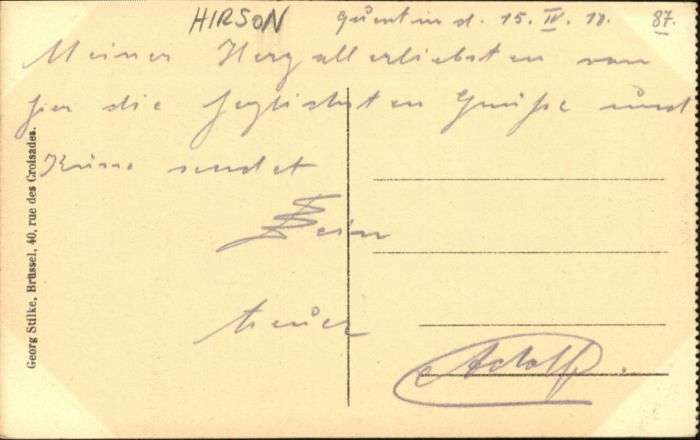 HIRSON Quentin d. 15. IV. 18. 87.
Meiner Herzallerliebsten von
hier die herzlichsten Grüße und
Küsse sendet
Dein
treuer
Adolf.
Georg Stilke, Brüssel, 40, rue des Croisades.